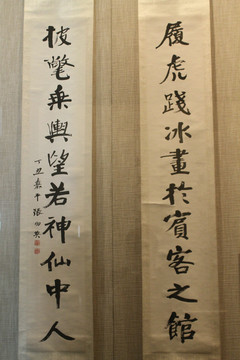 履虎踐冰畫於賓客之館
披氅乘輿望若神仙中人
丁丑嘉平 張伯英